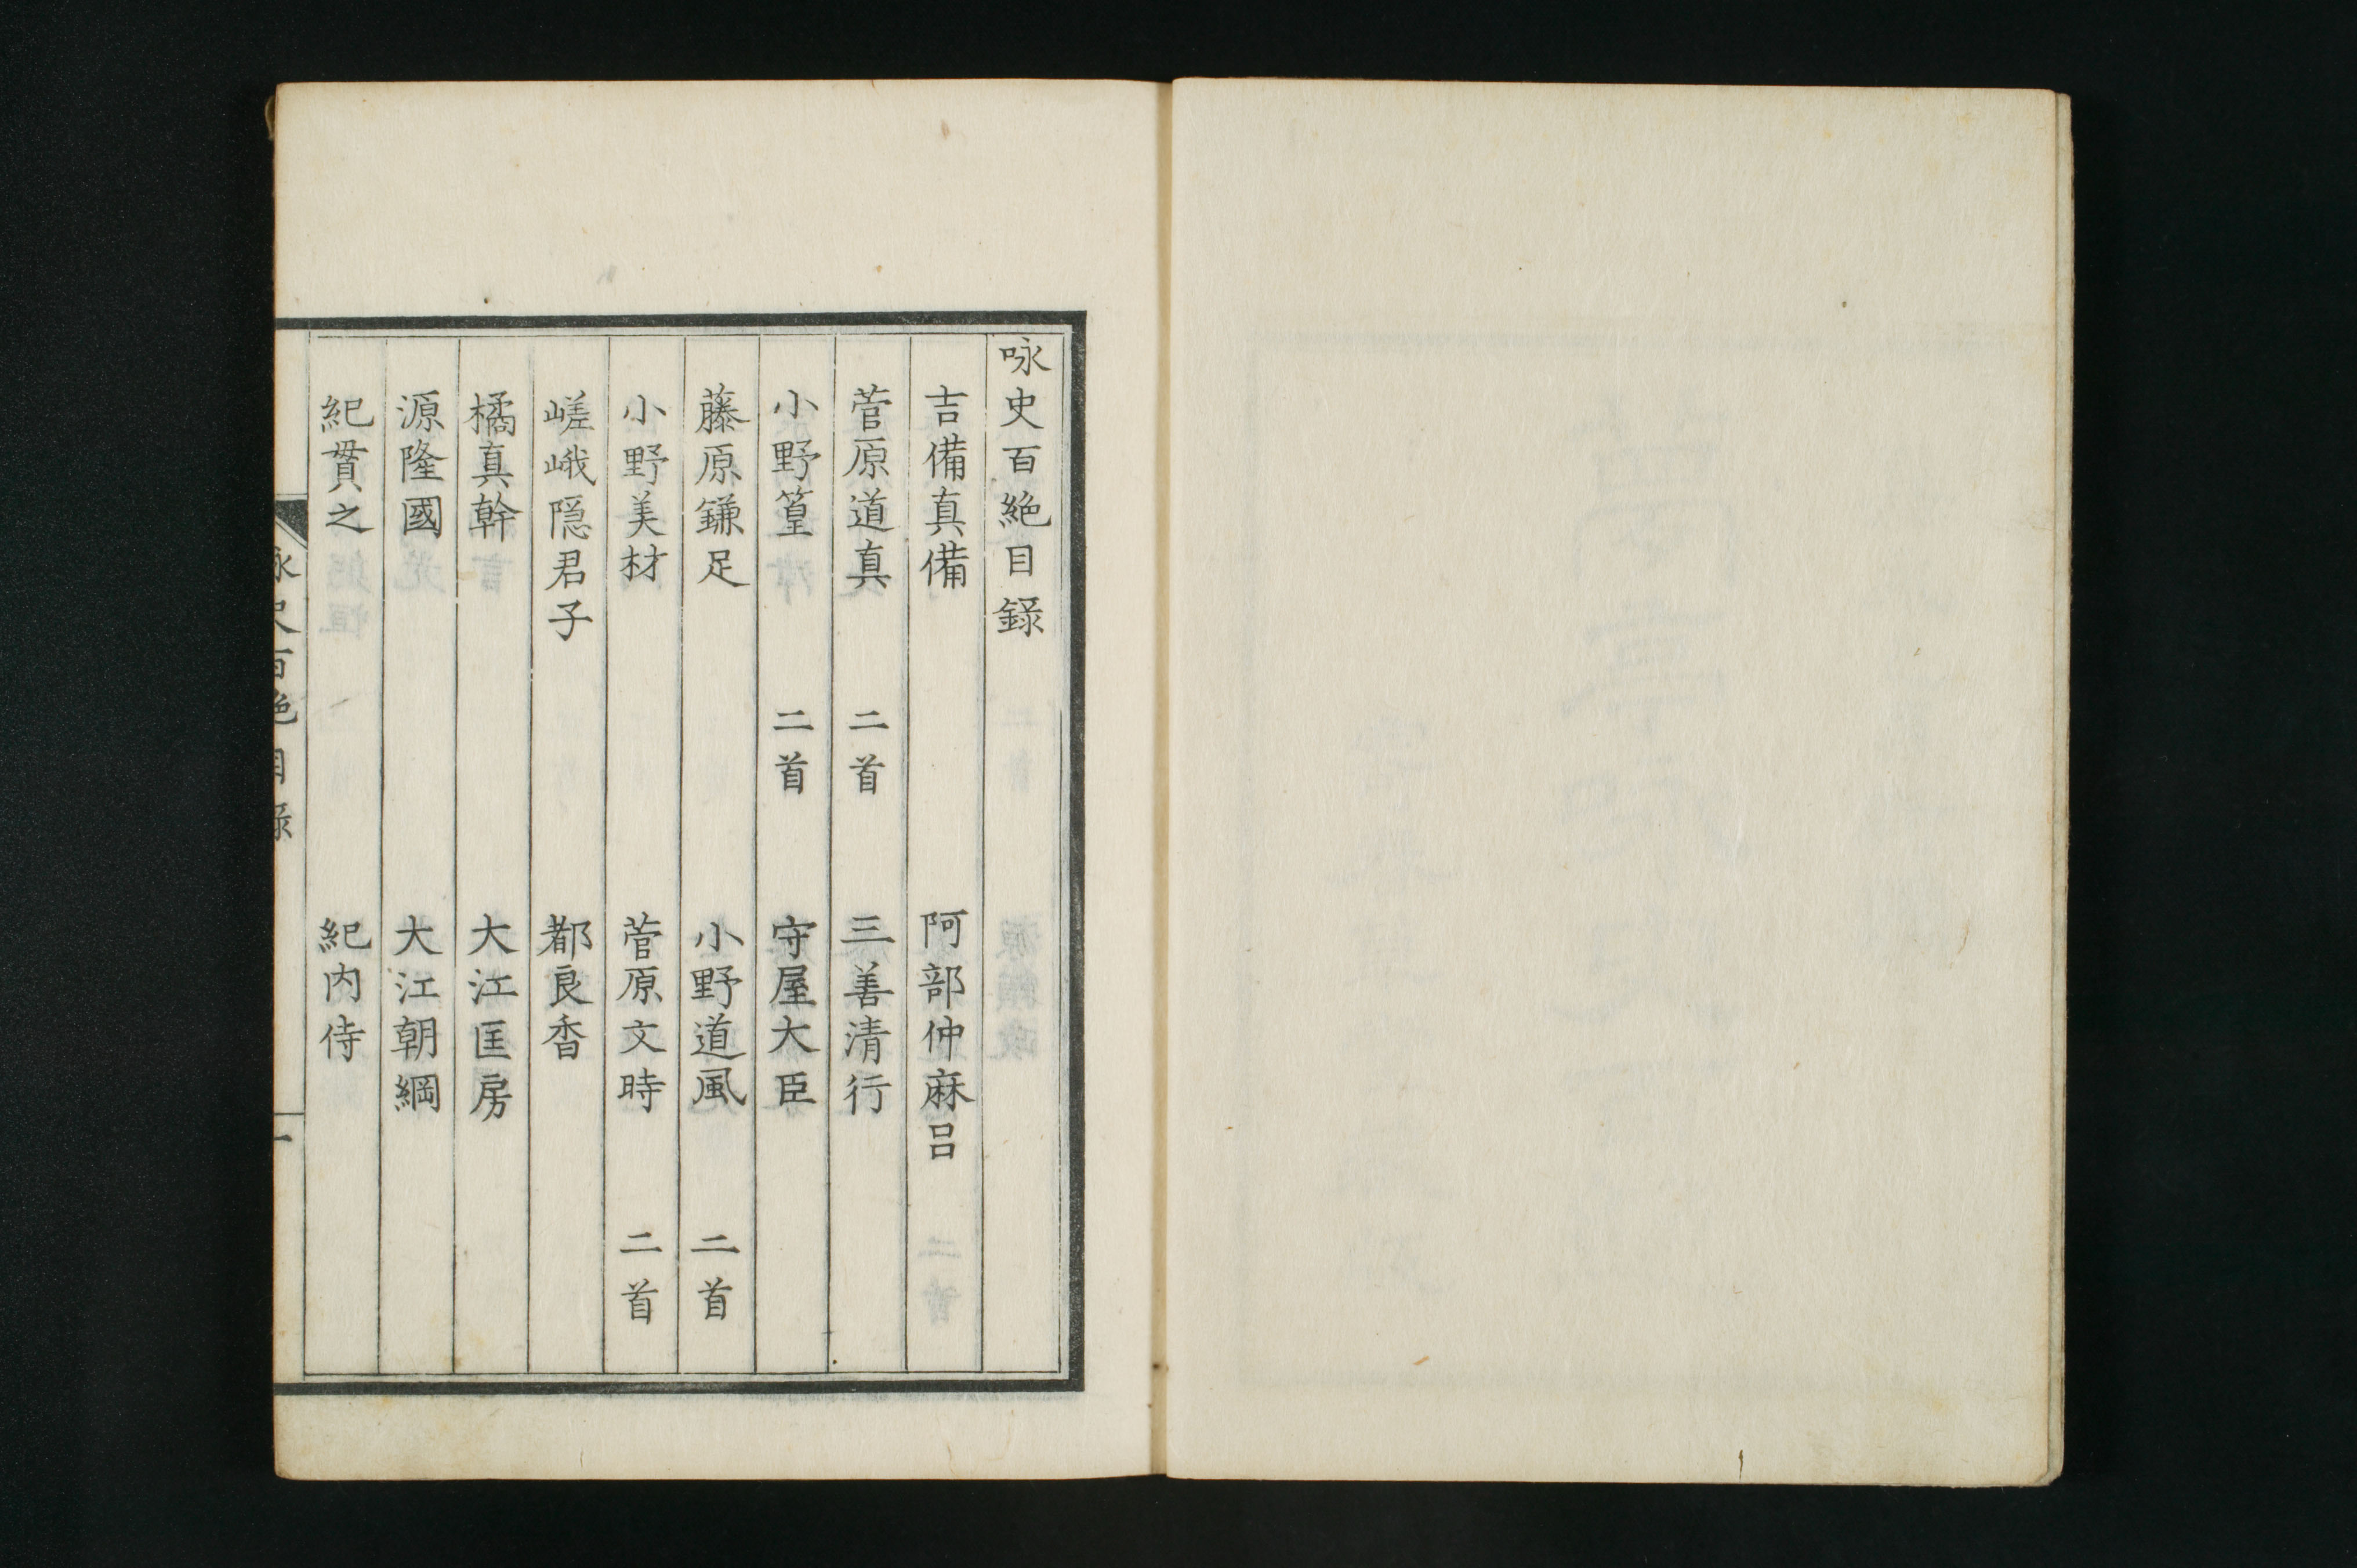 咏史百絶目録
吉備真備 阿部仲麻呂
菅原道真 二首 三善清行
小野篁 二首 守屋大臣
藤原鎌足 小野道風 二首
小野美材 菅原文時 二首
嵯峨隠君子 都良香
橘真幹 大江匡房
源隆國 大江朝綱
紀貫之 紀内侍
咏史百絶目録 一